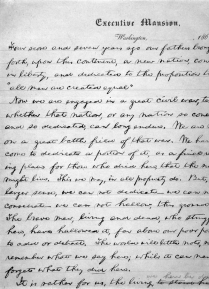 Executive Mansion,
Washington, 186
Four score and seven years ago our fathers brought
forth, upon this continent, a new nation, conceived
in liberty, and dedicated to the proposition that
"all men are created equal"
Now we are engaged in a great civil war, testing
whether that nation, or any nation so conceived
and so dedicated, can long endure. We are
on a great battle field of that war. We have
come to dedicate a portion of it, as a final rest
ing place for those who died here that the nation
might live. This we may, in all propriety do. But, in a
larger sense, we can not dedicate we can not
consecrate we can not hallow, this ground
The brave men, living and dead, who struggled
here, have hallowed it, far above our poor power
to add or detract. The world will little note, nor
remember what we say here; while it can never
forget what they did here.
It is rather for us, the living,